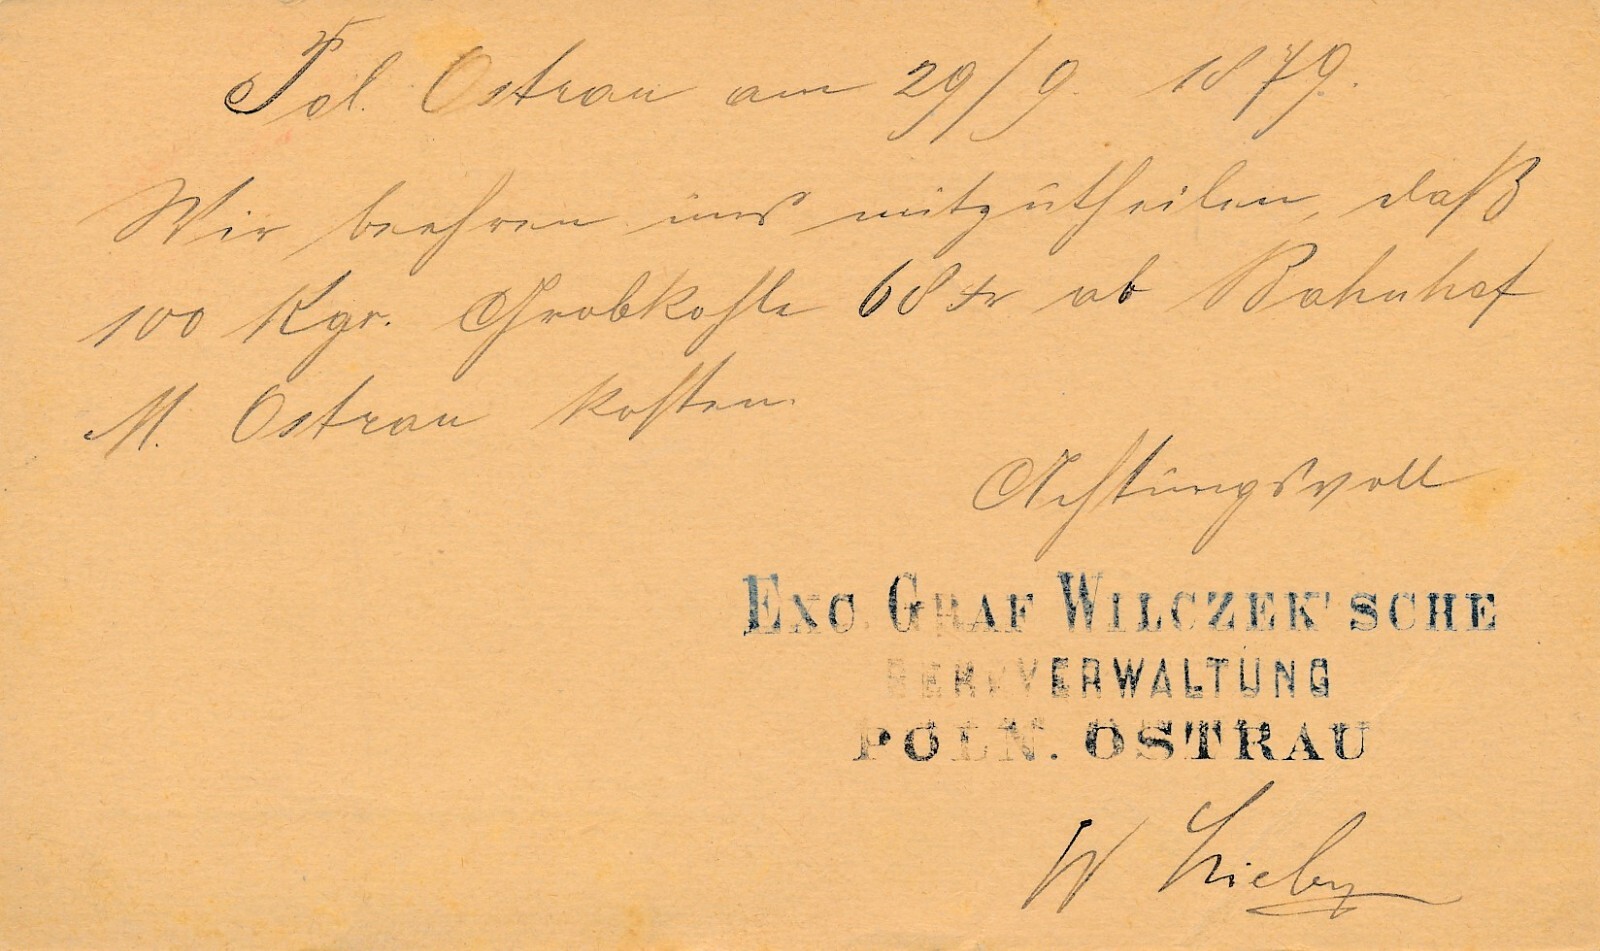 Pol. Ostrau am 29/9. 1879.
Wir beehren uns mitzutheilen, daß
100 Kgr. Grobkohle 68 Kr ab Bahnhof
M. Ostrau kosten.
Achtungsvoll
EXC. GRAF WILCZEK'SCHE
BERGVERWALTUNG
POLN. OSTRAU
W